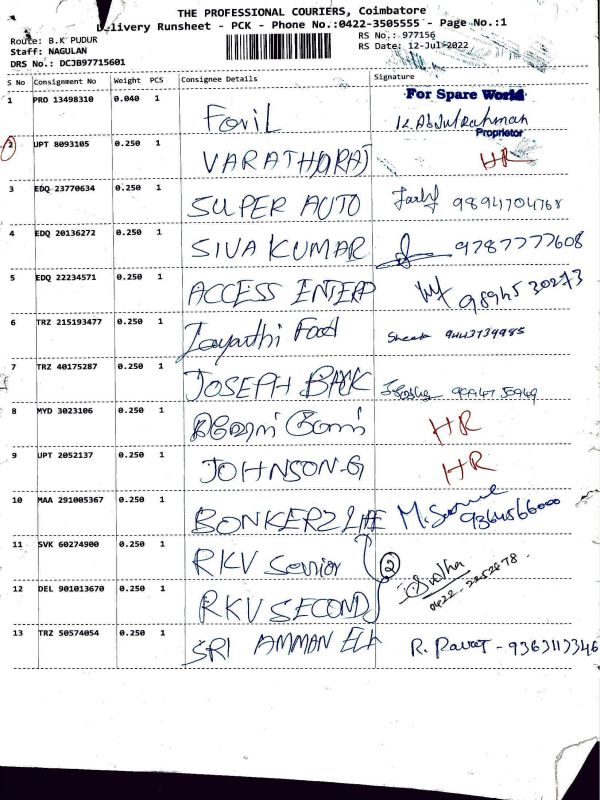 THE PROFESSIONAL COURIERS, Coimbatore
Delivery Runsheet - PCK - Phone No.:0422-3505555 - Page No.:1
Route: B.K PUDUR
Staff: NAGULAN
DRS No.: DCJB97715601
RS No.: 977156
RS Date: 12-Jul-2022
S No Consignment No Weight PCS Consignee Details Signature
1 PRO 13498310 0.040 1 For Spare World
K. Abdul Rahman
Proprietor
2 UPT 8093105 0.250 1 VARATHARAJ HR
3 EDQ 23770634 0.250 1 SUPER AUTO 9894704768
4 EDQ 20136272 0.250 1 SIVA KUMAR 9787777608
5 EDQ 22234571 0.250 1 ACCESS ENTERP 9894530273
6 TRZ 215193477 0.250 1 Food 9443739985
7 TRZ 40175287 0.250 1 JOSEPH
8 MYD 3023106 0.250 1 HR
9 UPT 2052137 0.250 1 JOHNSON-G HR
10 MAA 291005367 0.250 1 BONKERZ LIFE 9364566000
11 SVK 60274900 0.250 1 RKV Senior 2
12 DEL 901013670 0.250 1 RKV SECOND Sudha
0422-2252878.
13 TRZ 50574054 0.250 1 SRI AMMAN ELE R. - 9363113346